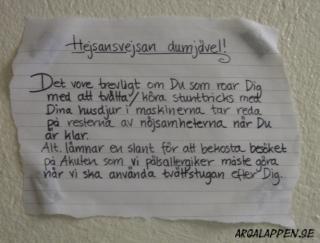 Hejsansvejsan dumjävel!
Det vore trevligt om Du som roar Dig
med att tvätta/köra stunttricks med
Dina husdjur i maskinerna tar reda
på resterna av nöjsamheterna när Du
är klar.
Alt. lämnar en slant för att bekosta besöket
på Akuten som vi pälsallergiker måste göra
när vi ska använda tvättstugan efter Dig.
ARGALAPPEN.SE